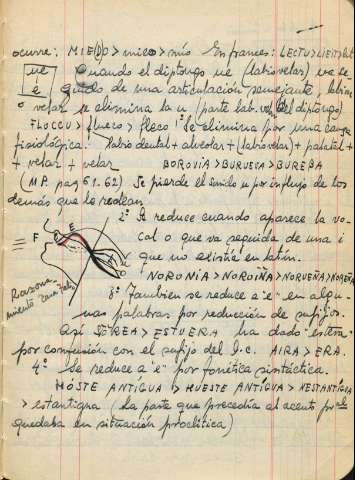 ocurre: MIE(D)O > mieo > mío En frances: LECTU > LIEIT > lit
ue
e
Cuando el diptongo ue (labiovelar) va se-
guido de una articulación semejante, labial
o velar se elimina la u (parte lab. vel. del diptongo)
FLOCCU > flueco > fleco 1º Se elimina por una causa
fisiológica: labiodental + alveolar + (labiovelar) + palatal +
+ velar + velar BOROVIA > BURUEVA > BUREBA
(M.P. pag 61.62) Se pierde el sonido u por influjo de los
demás que le rodean
2º Se reduce cuando aparece la vo-
cal o que va seguida de una i
que no existía en latín.
NORONIA > NOROIÑA > NORUEÑA > NOREÑA
F E
Razona-
miento
3º Tambien se reduce a "e" en algu-
nas palabras por reducción de sufijos.
Así STOREA > ESTUERA ha dado "estera
por confusión con el sufijo del I.C. AIRA > ERA.
4º Se reduce a "e" por fonética sintáctica.
HÓSTE ANTÍGUA > HUESTE ANTÍGUA > HESTANTÍGUA
> estantigua (la parte que precedía al acento pral
quedaba en situación proclítica)